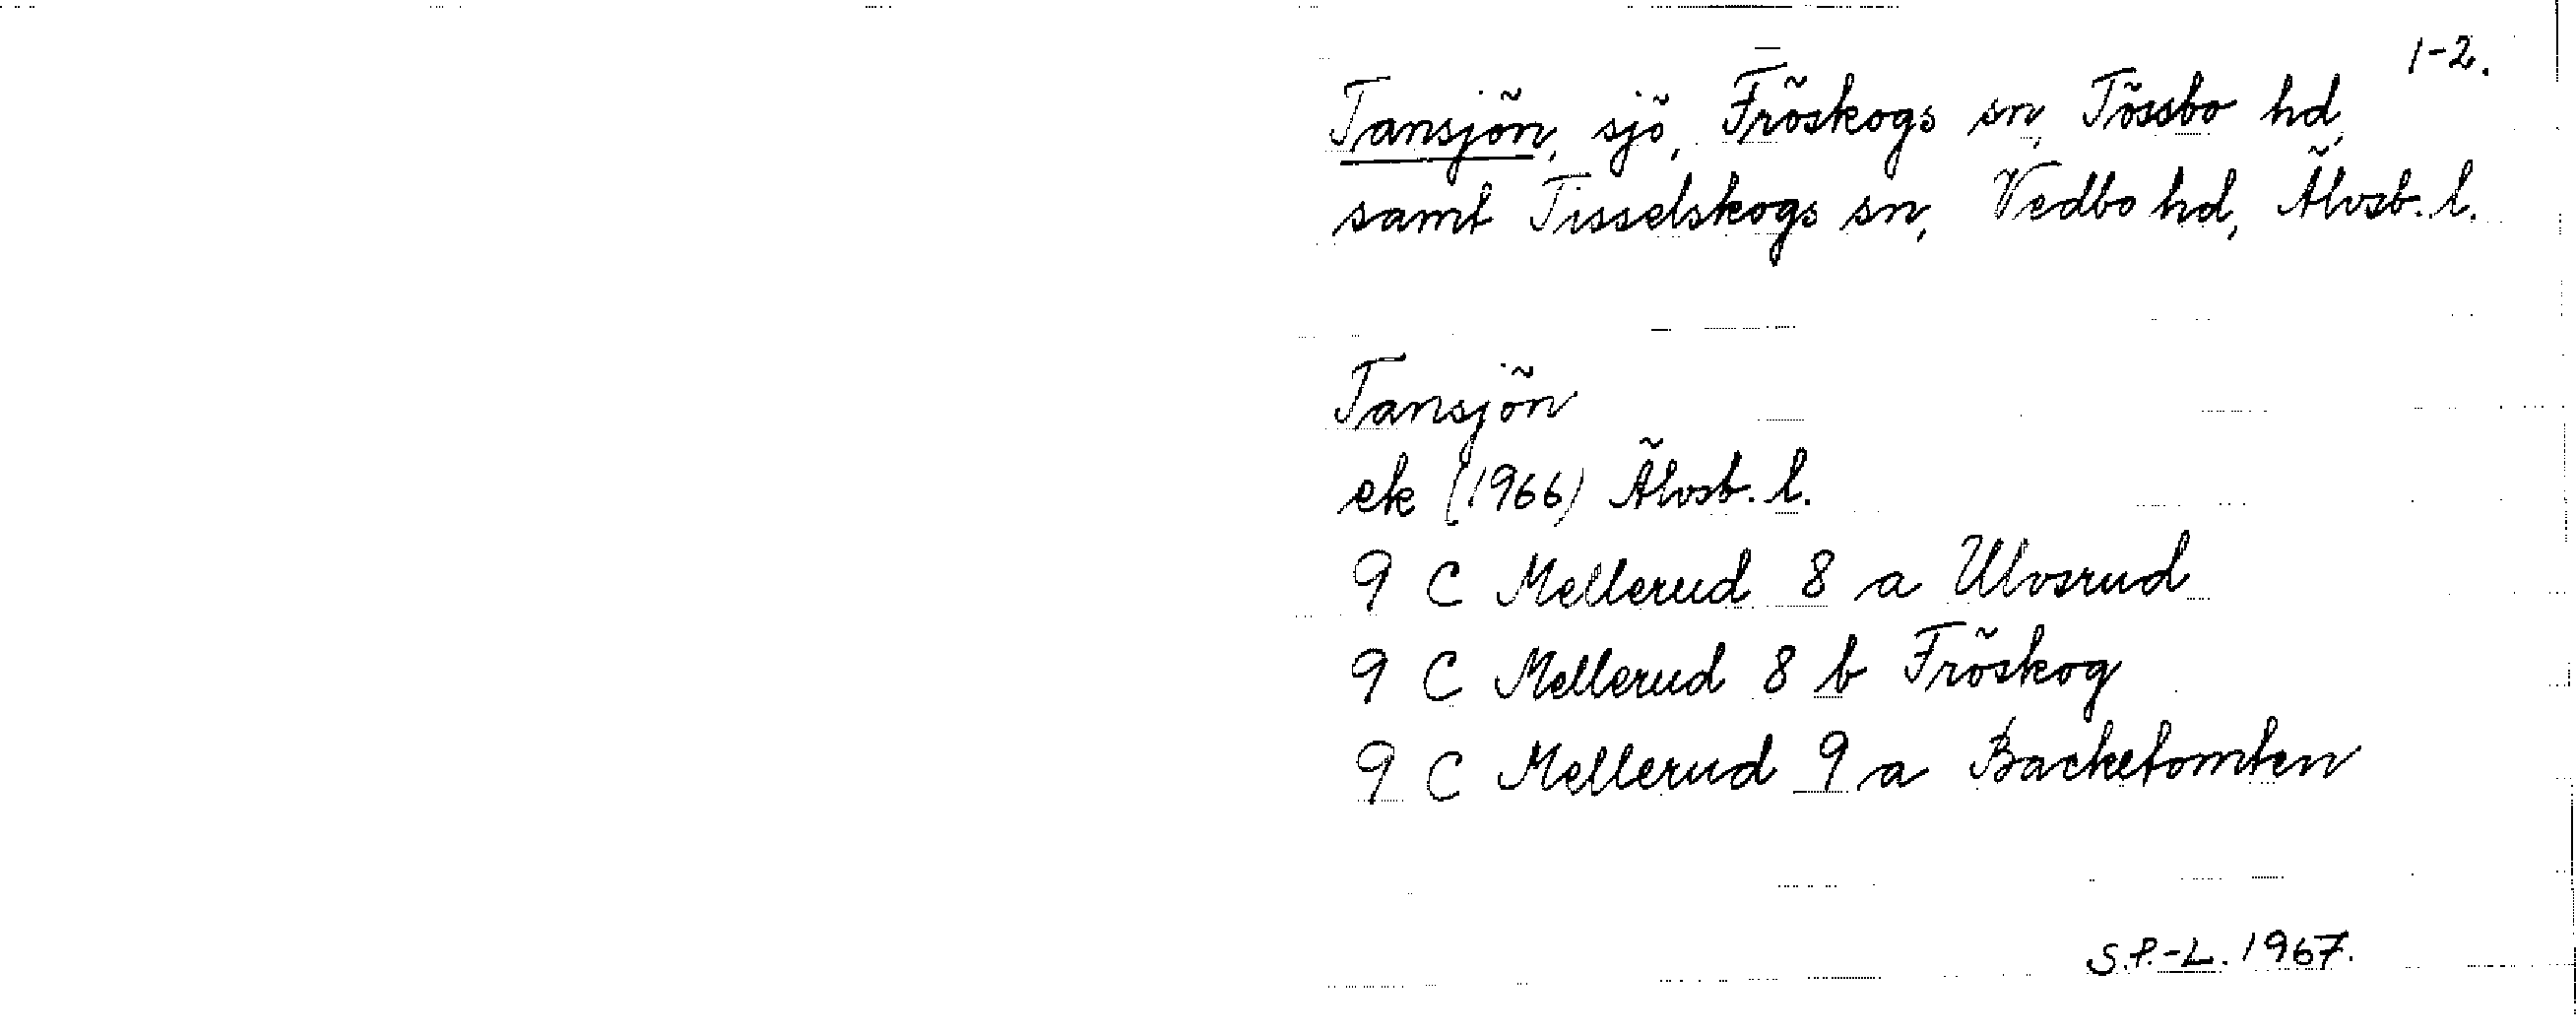 1-2.
Tansjön, sjö, Fröskogs sn, Tössbo hd,
samt Tisselskogs sn, Vedbo hd, Älvsb. l.
Tansjön
ek (1966) Älvsb. l.
9 C Mellerud 8 a Ulvsrud
9 C Mellerud 8 b Fröskog
9 C Mellerud 9 a Backetomten
S.P.-L. 1967.